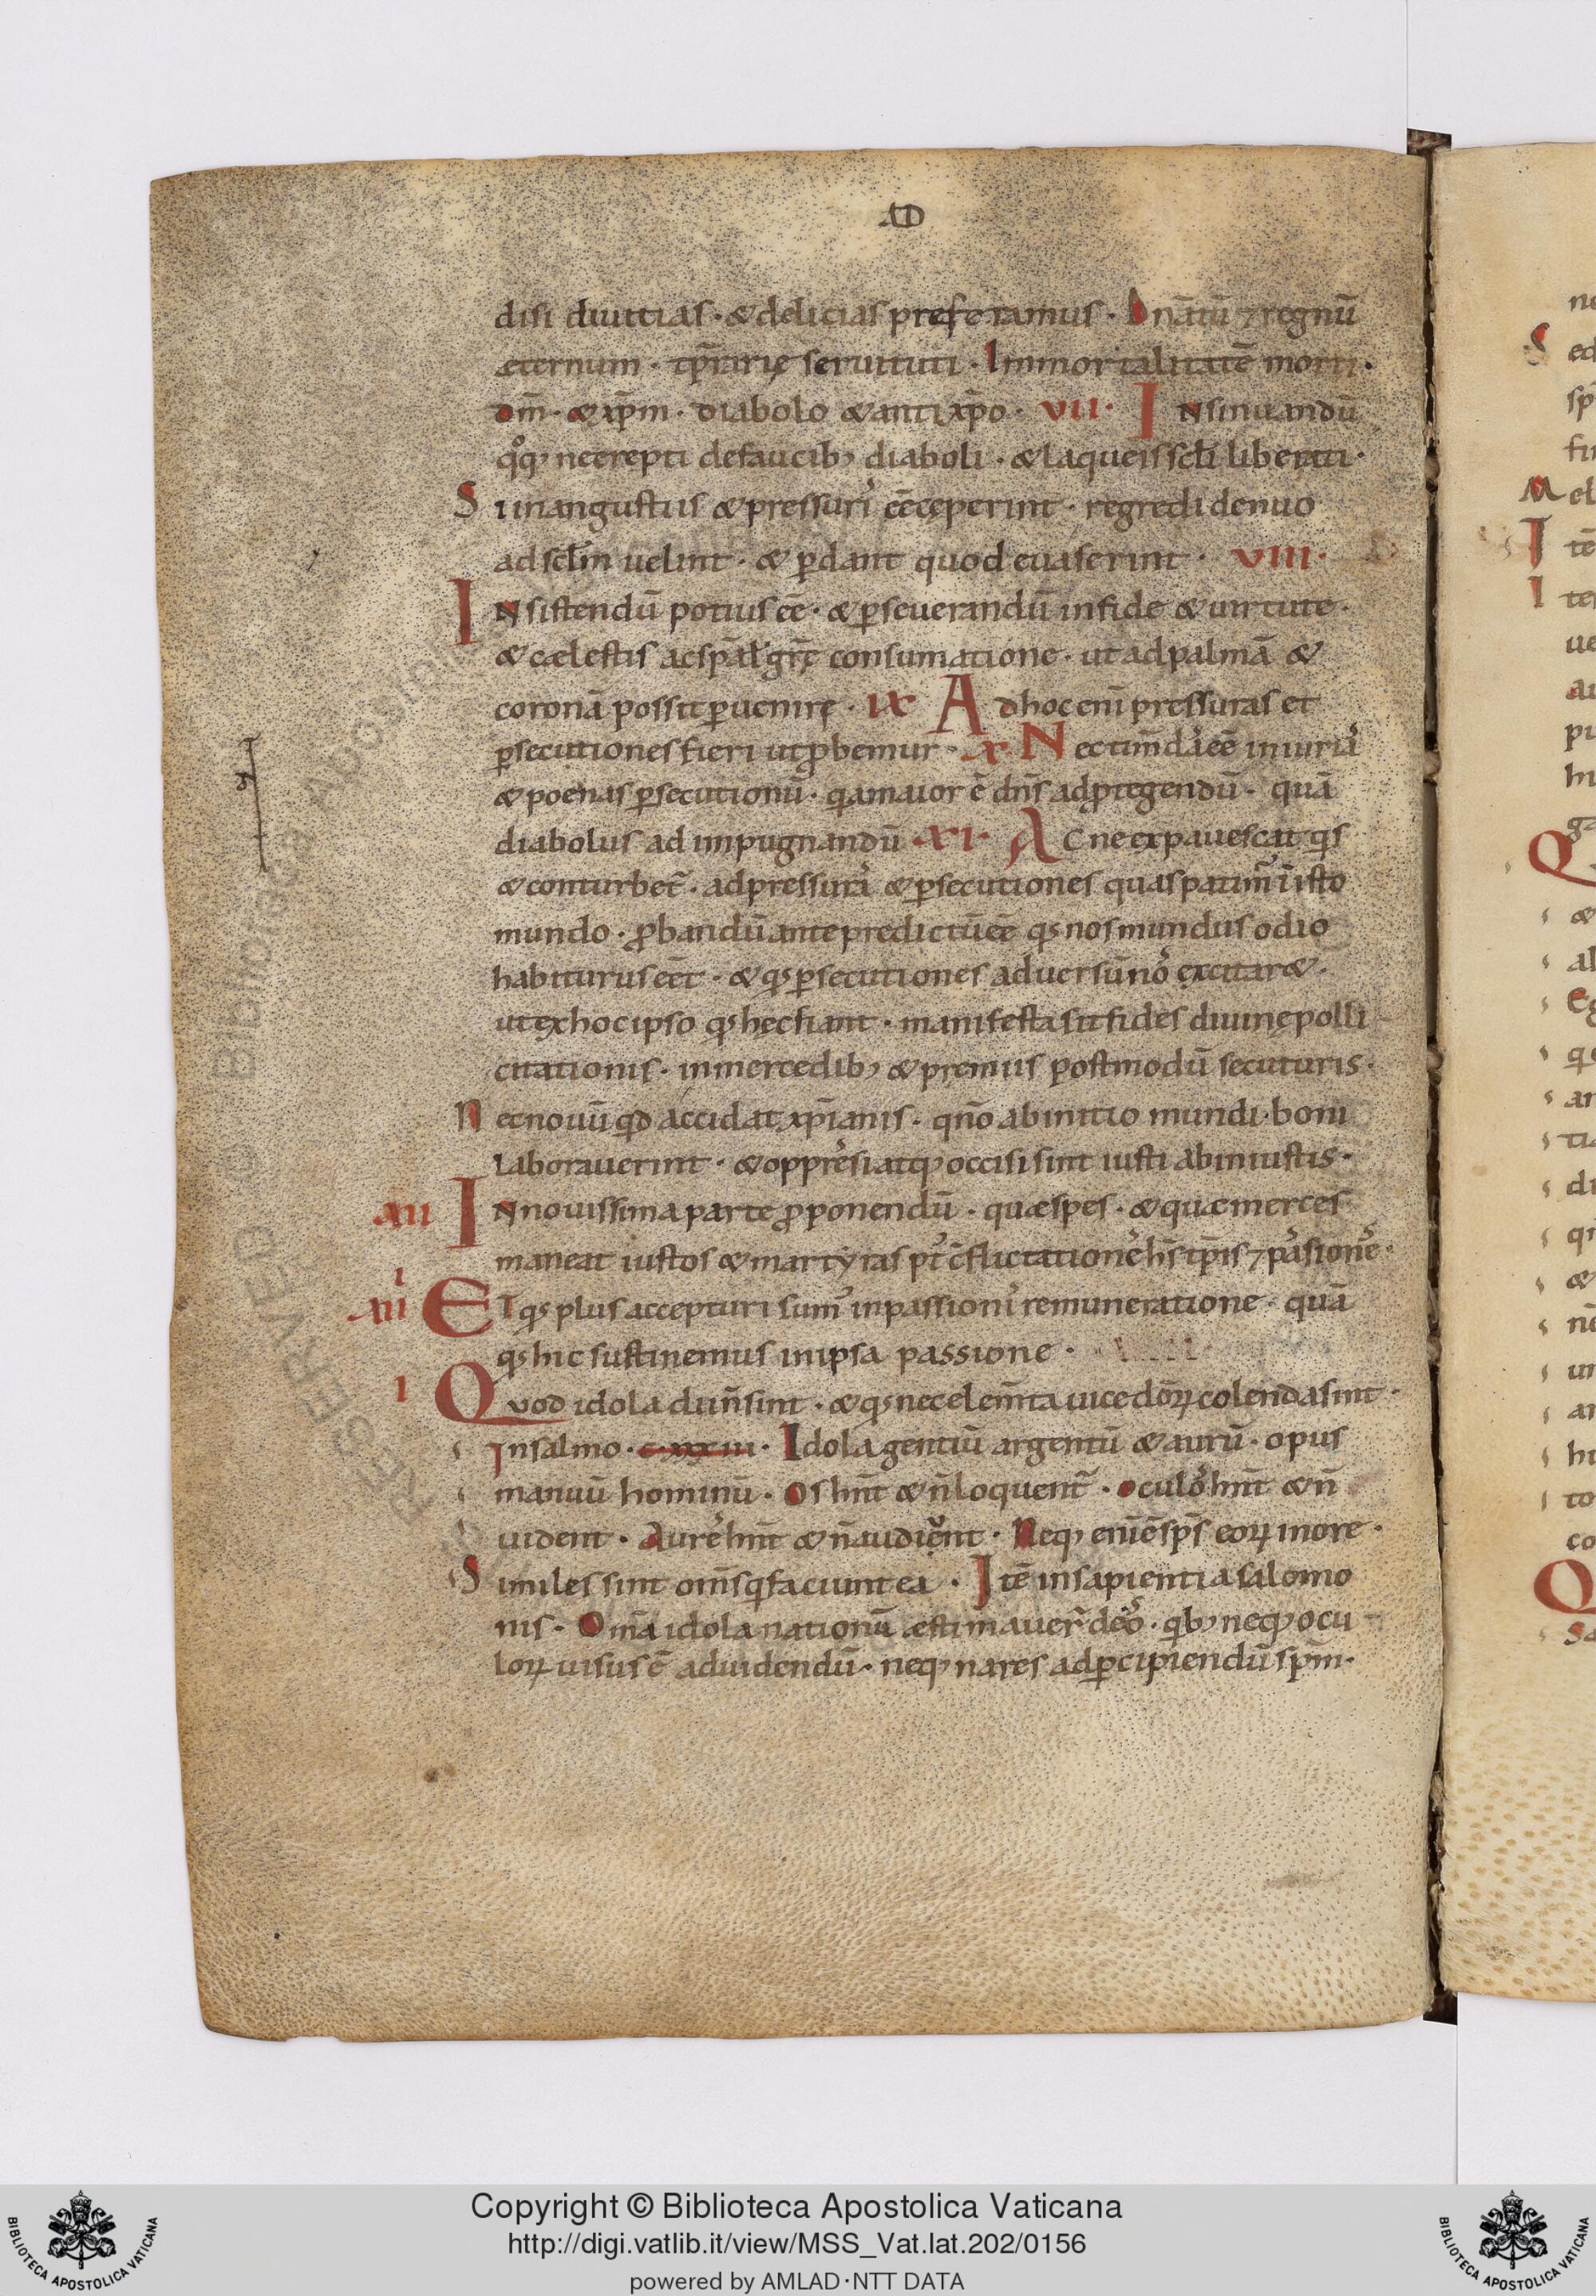 AD
disi diuitias · & delicias preferamus · Dnātū ⁊ regnū
æternum · tp̄rarię seruituti · Immortalitatē morti ·
dm̄ · & xp̄m · diabolo & antixp̄o · VII · Insinuandū
qͦq; ne erepti defaucib; diaboli · & laqueis scl̄i liberati ·
Si inangustiis & pressuriˢ eē cęperint · regredi denuo
ad scl̄m uelint · & p̄dant quod euaserint · VIII ·
Insistendū potius eē · & p̄seuerandū infide & uirtute ·
& cælestis ac sp̄al' gr̄ę consumatione · ut ad palmā &
coronā possit p̄uenire · IX Ad hoc eni pressuras et
p̄secutiones fieri ut p̄bemur · X Nec tim̄daˢ eē iniuriaˢ
& poenas p̄secutionū · qia maior ē dn̄s ad p̄tegendū · quā
diabolus ad impugnandū · XI · AC ne expauescat qis
& conturbet᷒ · ad pressuraˢ & p̄secutiones quas patim᷒ ī isto
mundo · p̄bandū ante predictū eē q; nos mundus odio
habiturus eēt · & q; p̄secutiones aduersū noˢ excitar& ·
ut ex hoc ipso q; hęc fiant · manifesta sit fides diuinę polli
citationis · inmercedib; & premiis postmodū secuturis ·
Nec nouū qd accidat xp̄ianis · qn̄o ab initio mundi · boni
laborauerint · & oppreˢsi atq; occisi sint iusti ab iniustis ·
XII Innouissima parte p̄ponendū · quæ spes · & quæ merces
maneat iustos & martyras p᷒t c̄flictationeˢ hˢ tp̄is ⁊ paˢsioneˢ ·
XIII ET q; plus accepturi sum᷒ inpassioniˢ remuneratione · quā
q; hic sustinemus inipsa passione ·
I Quod idola dii n̄ sint · & q; nec elem̄ta uice dōꝝ colenda sint ·
Insalmo · cxxxiii · Idola gentiū argentū & aurū · opus
manuū hominū · Os hn̄t & n̄ loquent᷒ · oculoˢ hn̄t & n̄
uident · Aureˢ hn̄t & n̄ audient · Neq; eni ē sp̄s eoꝝ inore ·
Similes sint om̄s qi faciunt ea · Itē insapientia salomo
nis · Om̄a idola nationū æstimauer᷒ deoˢ · qib; neq; ocu
loꝝ uisus ē aduidendū · neq; nares ad p̄cipiendū sp̄m ·
Copyright © Biblioteca Apostolica Vaticana
http://digi.vatlib.it/view/MSS_Vat.lat.202/0156
powered by AMLAD·NTT DATA
BIBLIOTECA APOSTOLICA VATICANA
BIBLIOTECA APOSTOLICA VATICANA